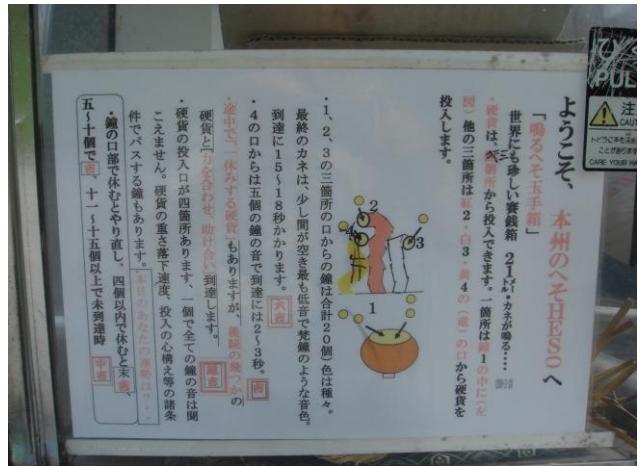 ようこそ、 本州のへそHESOへ
「鳴るへそ玉手箱」
世界にも珍しい賽銭箱 21メートル・カネが鳴る‥‥
・硬貨は、 箇所から投入できます。一箇所は 1の中に(左
図)他の三箇所は紅2・白3・黄4の(竜)の口から硬貨を
投入します。
2
4
3
1
・1、2、3の三箇所の口からの鐘は合計20個)色は種々。
最終のカネは、少し間が空き最も低音で梵鐘のような音色。
到達に15~18秒かかります。 大吉
・4の口からは五個の鐘の音で到達には2~3秒。 吉
・途中で、一休みする硬貨もありますが、後続の幾つかの
硬貨と「力を合わせ、助け合い到達します。
・硬貨の投入口が四箇所あります、一個で全ての鐘の音は聞
こえません。硬貨の重さ落下速度、投入の心構え等の諸条
件でパスする鐘もあります。本日のあなたの運勢は?‥
・鐘の口部で休むとやり直し、四個以内で休むと末吉、
五~十個で吉、十一~十五個以上で未到達時 中吉
PUL
注
CAUT
CARE YOUR